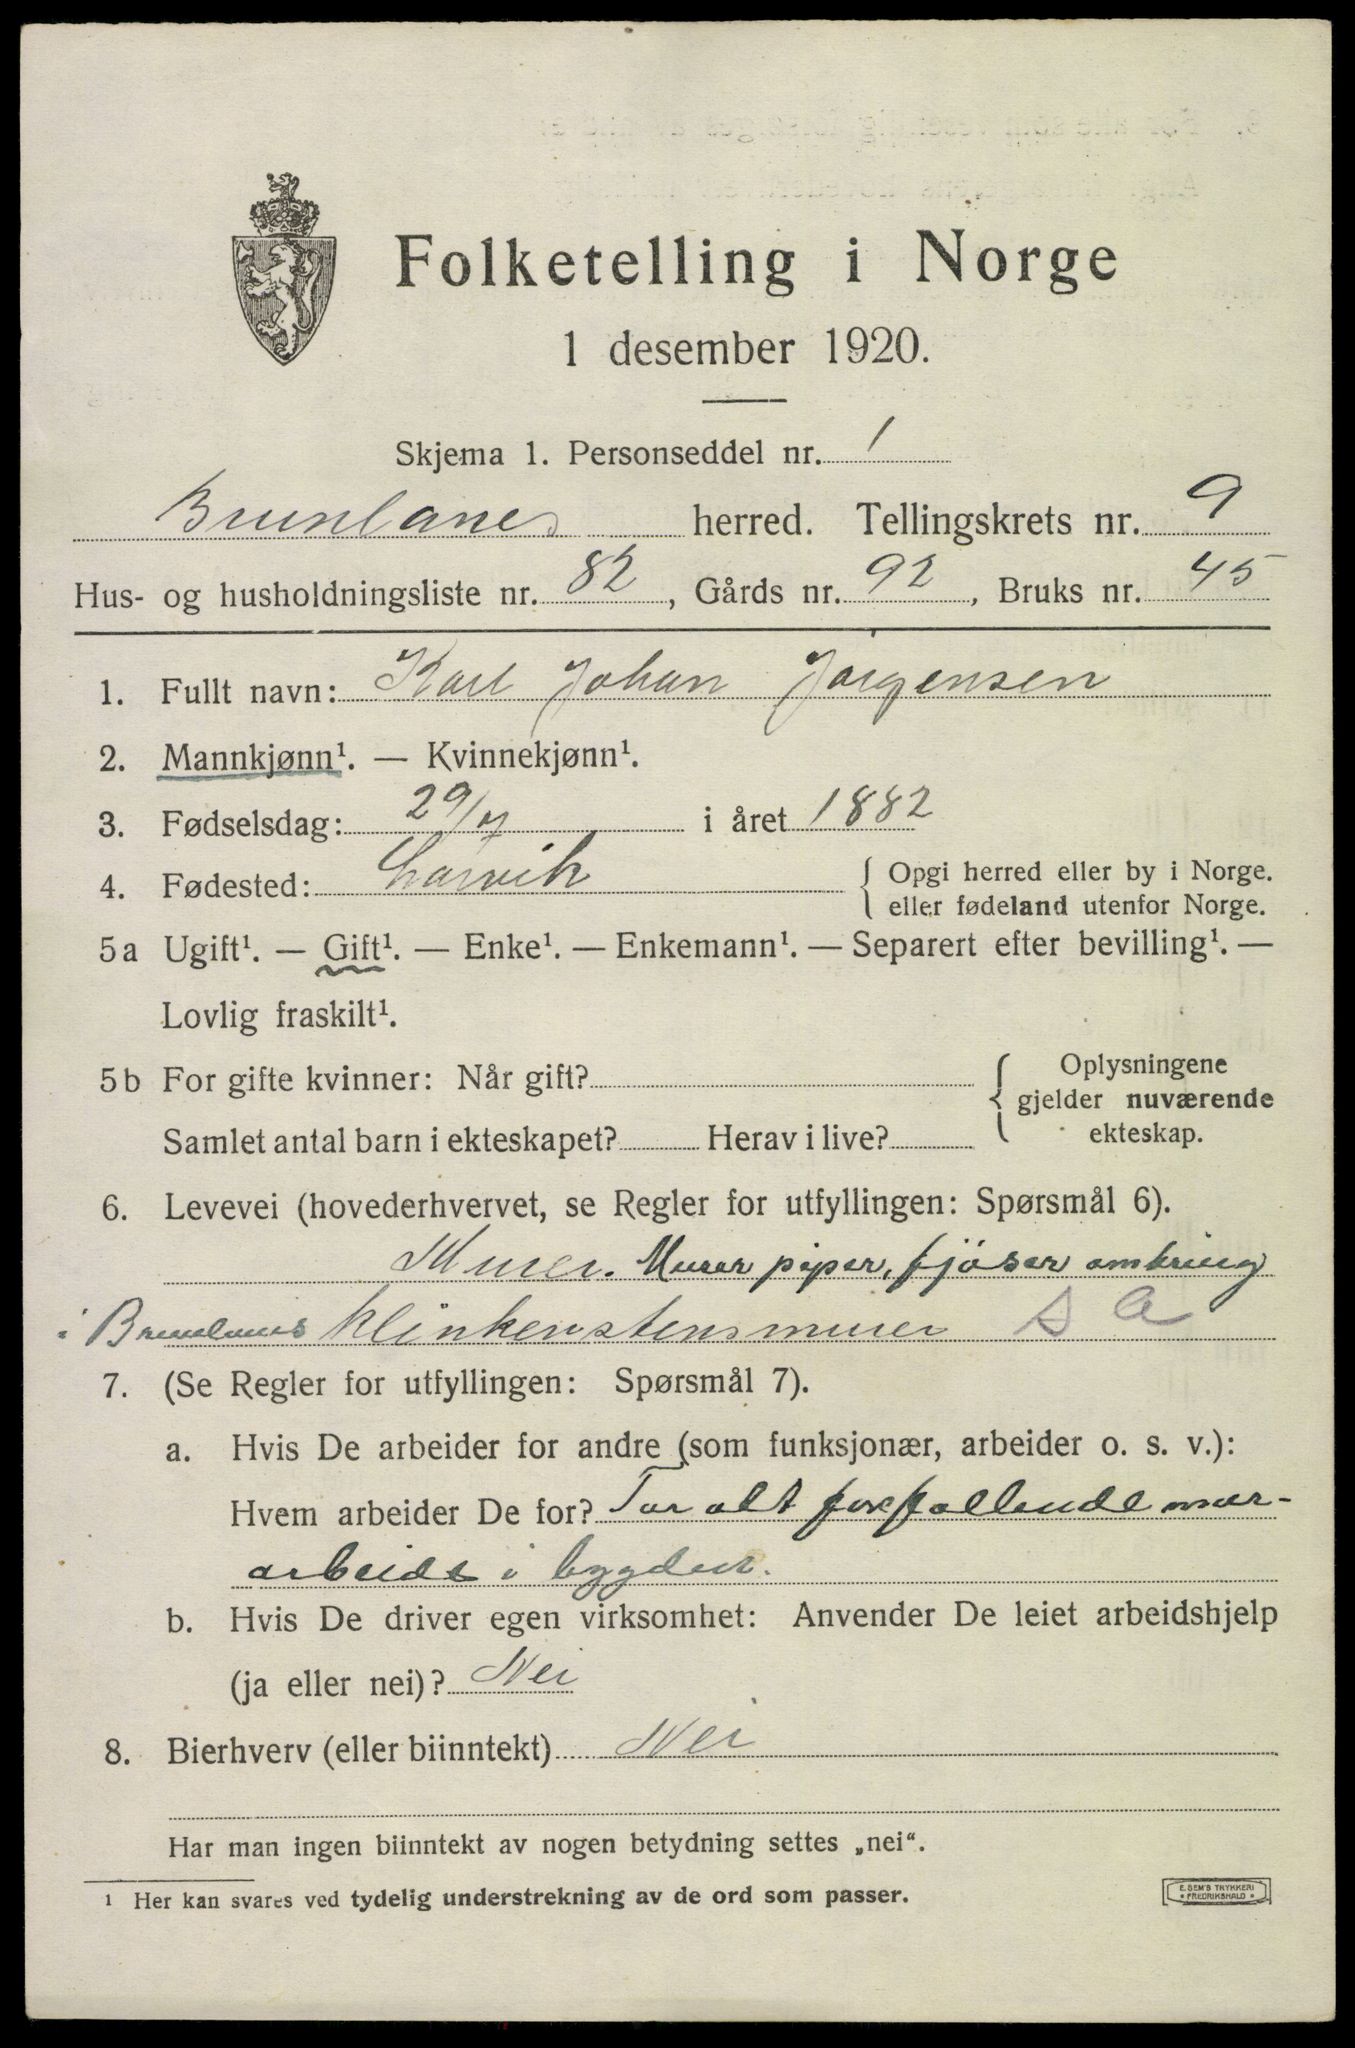 Folketelling i Norge
1 desember 1920.
Skjema 1. Personseddel nr. 1
Brunlanes herred. Tellingskrets nr. 9
Hus- og husholdningsliste nr. 82, Gårds nr. 92, Bruks nr. 45
1. Fullt navn: Karl Johan Jørgensen
2. Mannkjønn¹. — Kvinnekjønn¹.
3. Fødselsdag: 29/7 i året 1882
4. Fødested: Larvik { Opgi herred eller by i Norge.
eller fødeland utenfor Norge.
5a Ugift¹. — Gift¹. — Enke¹. — Enkemann¹. — Separert efter bevilling¹. —
Lovlig fraskilt¹.
5b For gifte kvinner: Når gift? { Oplysningene
gjelder nuværende
ekteskap.
Samlet antal barn i ekteskapet? Herav i live?
6. Levevei (hovederhvervet, se Regler for utfyllingen: Spørsmål 6).
Murer. Murer piper, fjøser omkring
i Brunlanes klinkerstensmurer S A
7. (Se Regler for utfyllingen: Spørsmål 7).
a. Hvis De arbeider for andre (som funksjonær, arbeider o. s. v.):
Hvem arbeider De for? Tar alt forfallende mur-
arbeide i bygden.
b. Hvis De driver egen virksomhet: Anvender De leiet arbeidshjelp
(ja eller nei)? Nei
8. Bierhverv (eller biinntekt) Nei
Har man ingen biinntekt av nogen betydning settes „nei“.
¹ Her kan svares ved tydelig understrekning av de ord som passer.
E. SEM'S TRYKKERI
• FREDRIKSHALD •